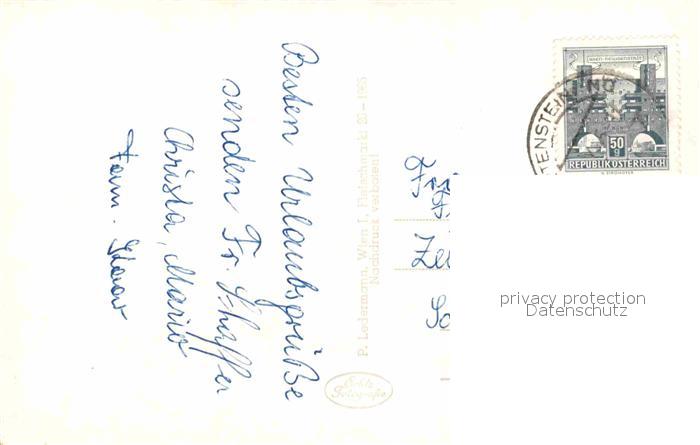 Besten Urlaubsgrüße
senden Fr. Schaffer
Christa, Mario
Fam.
P. Ledermann, Wien I, Fleischmarkt 20 – 1965
Nachdruck verboten!
Echte
Fotografie
WIEN-HEILIGENSTADT
50 g
REPUBLIK ÖSTERREICH
TENSTEIN
privacy protection
Datenschutz